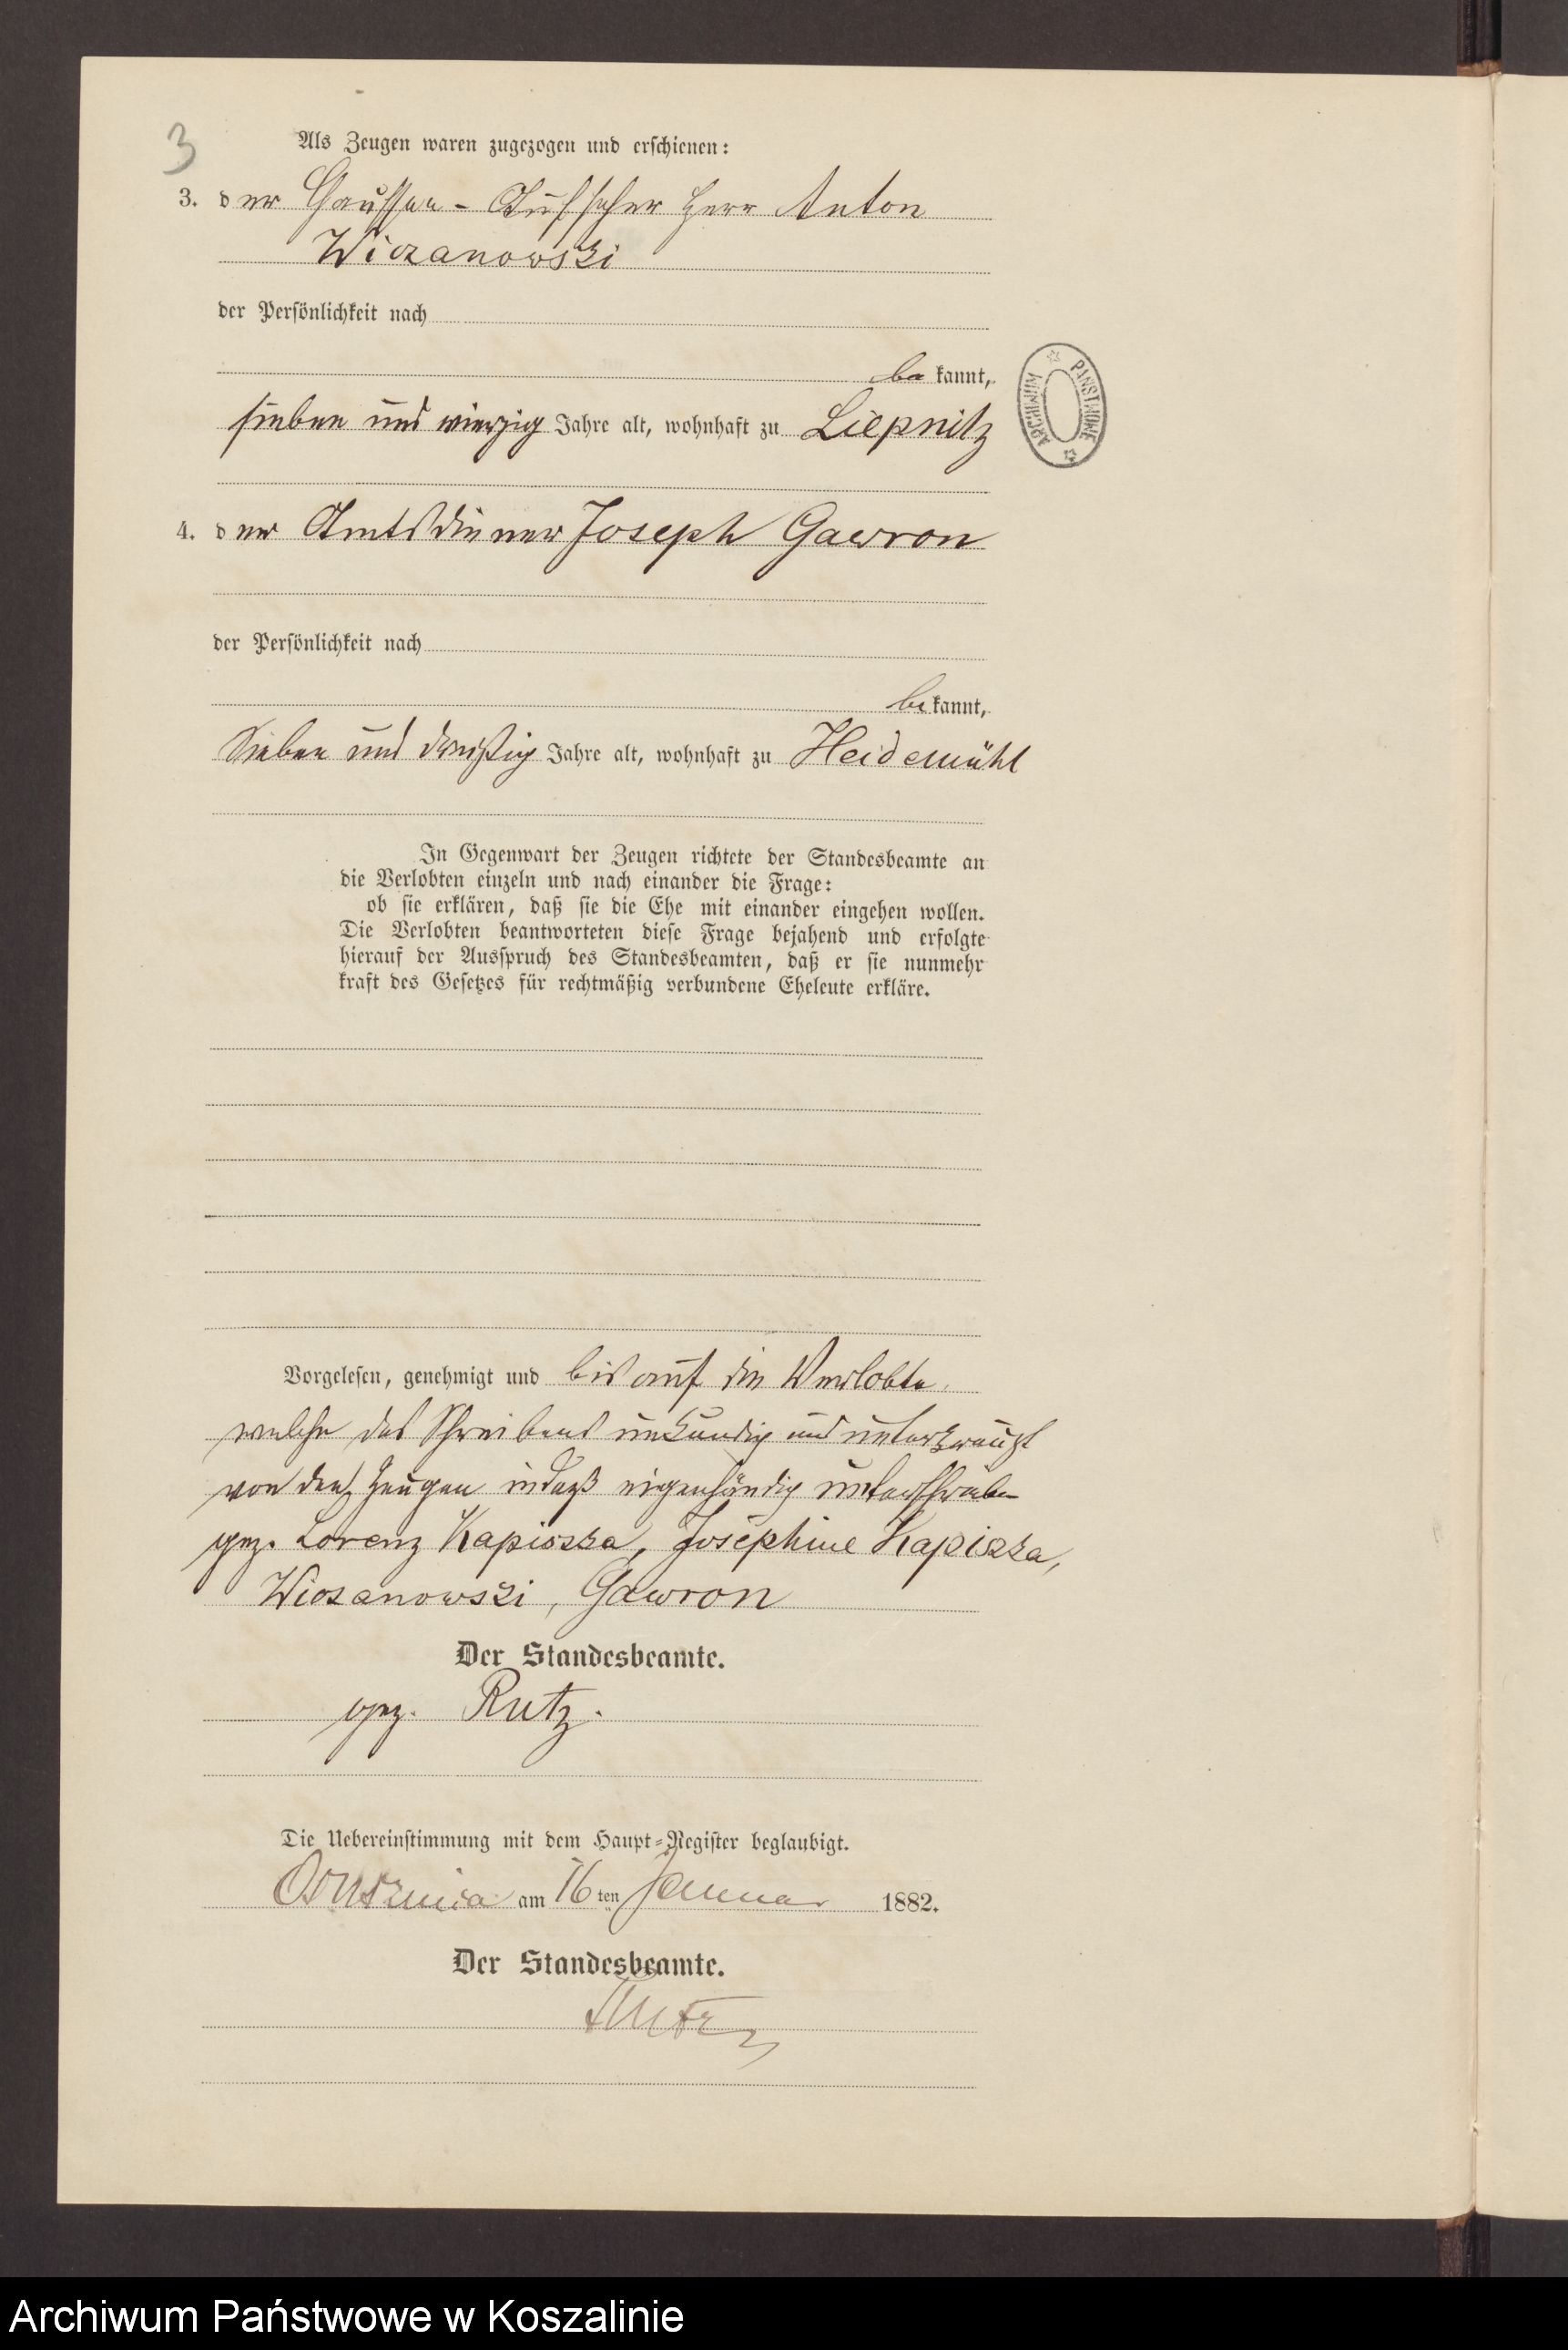 3
Als Zeugen waren zugezogen und erschienen:
3. der Chaussee-Aufseher Herr Anton
Wiczanowski
der Persönlichkeit nach
be kannt,
sieben und vierzig Jahre alt, wohnhaft zu Liepnitz
ARCHIWUM PAŃSTWOWE
4. der Amtsdiener Joseph Gawron
der Persönlichkeit nach
be kannt,
Sieben und dreißig Jahre alt, wohnhaft zu Heidemühl
In Gegenwart der Zeugen richtete der Standesbeamte an
die Verlobten einzeln und nach einander die Frage:
ob sie erklären, daß sie die Ehe mit einander eingehen wollen.
Die Verlobten beantworteten diese Frage bejahend und erfolgte
hierauf der Ausspruch des Standesbeamten, daß er sie nunmehr
kraft des Gesetzes für rechtmäßig verbundene Eheleute erkläre.
Vorgelesen, genehmigt und bis auf die Verlobte,
welche des Schreibens unkundig und unterkreuzt
von den Zeugen eigenhändig unterschrieben
gez. Lorenz Kapiszka, Josephine Kapiszka,
Wiczanowski, Gawron
Der Standesbeamte.
gez. Rutz.
Die Uebereinstimmung mit dem Haupt-Register beglaubigt.
Ossusznica am 16ten Januar 1882.
Der Standesbeamte.
Rutz
Archiwum Państwowe w Koszalinie